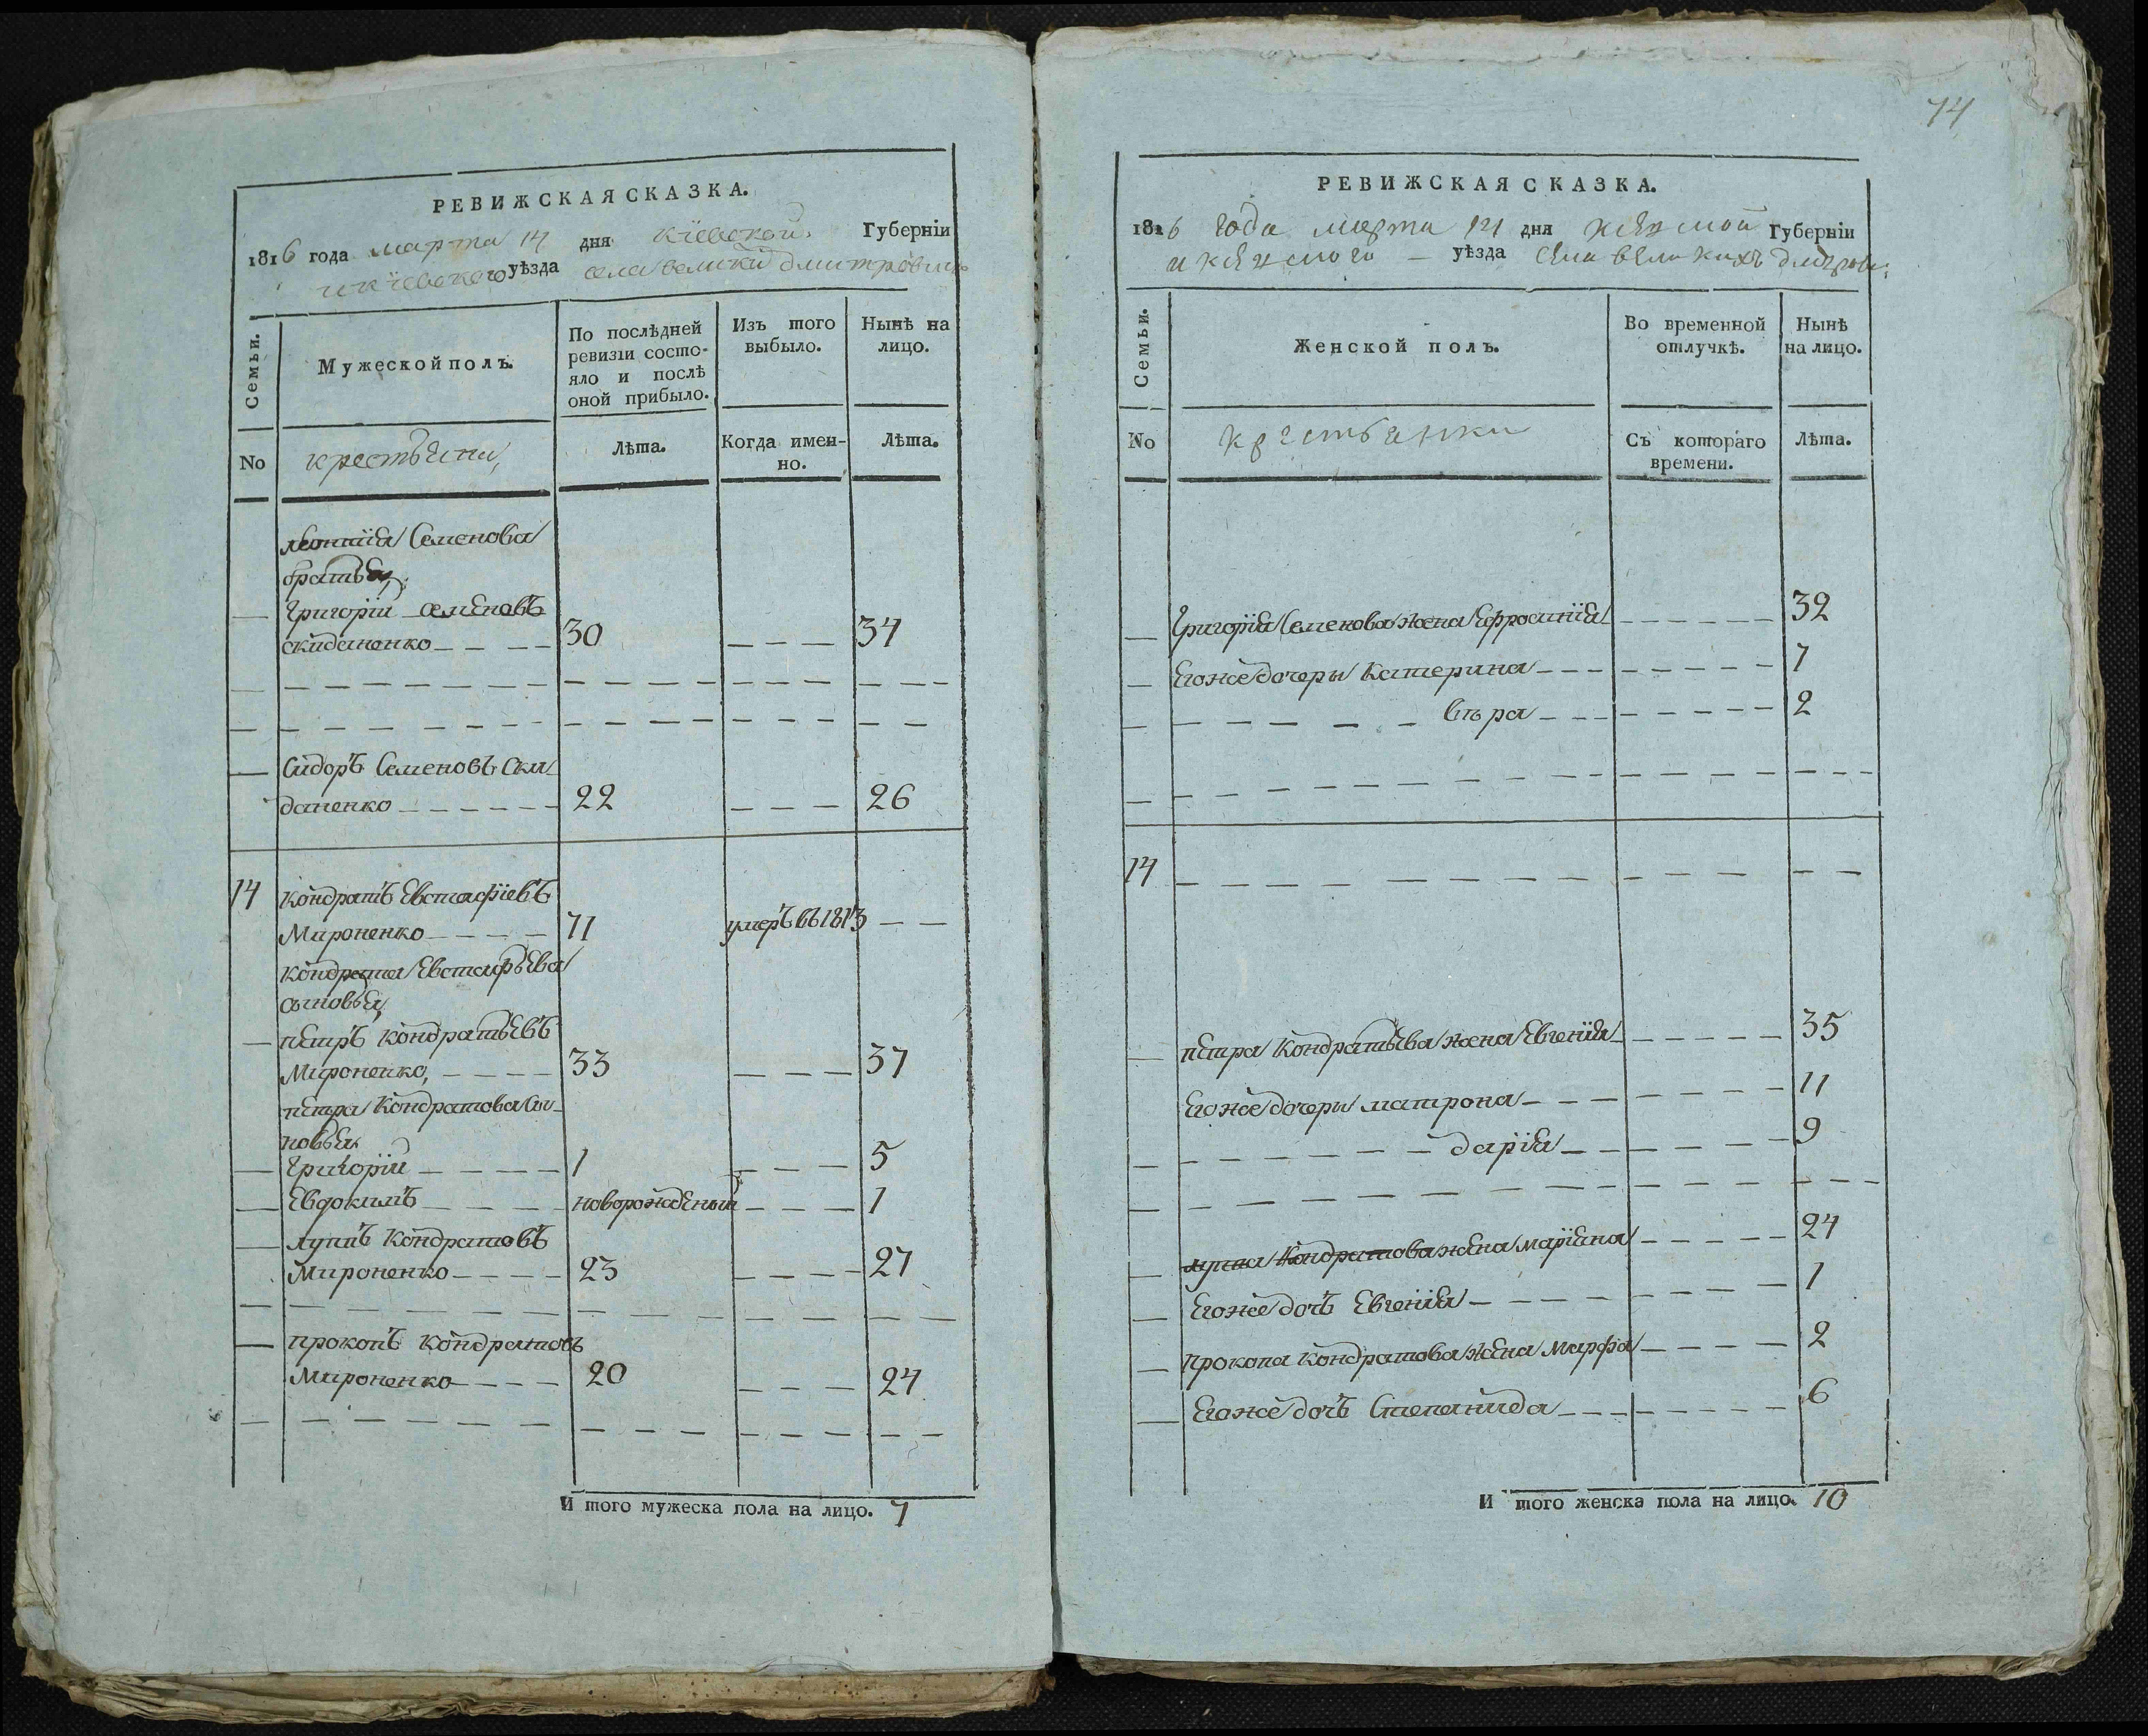 РЕВИЖСКАЯ СКАЗКА.
1816 года марта 14 дня Кіевской Губерніи
и кіевского уѣзда села великий дмитрович
Семьи.
Мужеской полъ.
По послѣдней ревизіи состо-
яло и послѣ
оной прибыло.
Изъ того
выбыло.
Нынѣ на
лицо.
No
крестьяни
Лѣта.
Когда имен-
но.
Лѣта.
леонтіа Семенова
братья
— Григорій семеновъ
скиданенко 30 — — — 34
— Сидоръ Семеновъ Ски-
даненко 22 — — — 26
14 Кондратъ Евстафіевъ
Мироненко 71 умеръ въ 1813 — —
Кондрата Евстафьева
сыновья
— петръ Кондратьевъ
Мироненко, 33 — — — 37
петра Кондратова сы-
новья
— Григорій 1 — — — 5
— Евдокимъ новорожденый — — — 1
— лупъ Кондратовъ
Мироненко 23 — — — 27
— прокопъ Кондратовъ
Мироненко 20 — — — 24
И того мужеска пола на лицо. 7
74
РЕВИЖСКАЯ СКАЗКА.
1816 года марта 14 дня Кіевской Губерніи
и кіевского — уѣзда села великихъ
Семьи.
Женской полъ.
Во временной
отлучкѣ.
Нынѣ
на лицо.
No
крестьянки
Съ котораго
времени.
Лѣта.
— Григоріа Семенова жена Ефросинія 32
— Егоже дочеры Катерина 7
— вѣра 2
14
— петра Кондратьева жена Евгенія 35
— Егоже дочеры матрона 11
— дарія 9
— лупа Кондратова жена маріяна 24
— Егоже дочъ Евгенія 1
— прокопа Кондратова жена Марфа 2
— Егоже дочъ Степанида 6
И того женска пола на лицо. 10